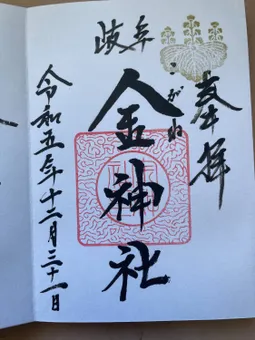 奉拝
岐阜
こがね
金神社
令和五年十二月三十一日